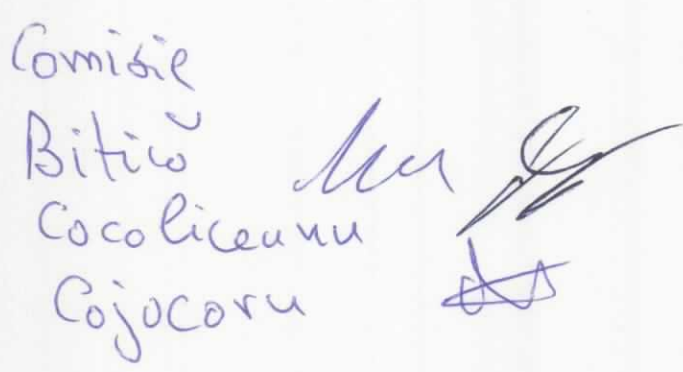 Comisie
Bitică
Cocoliceanu
Cojocaru